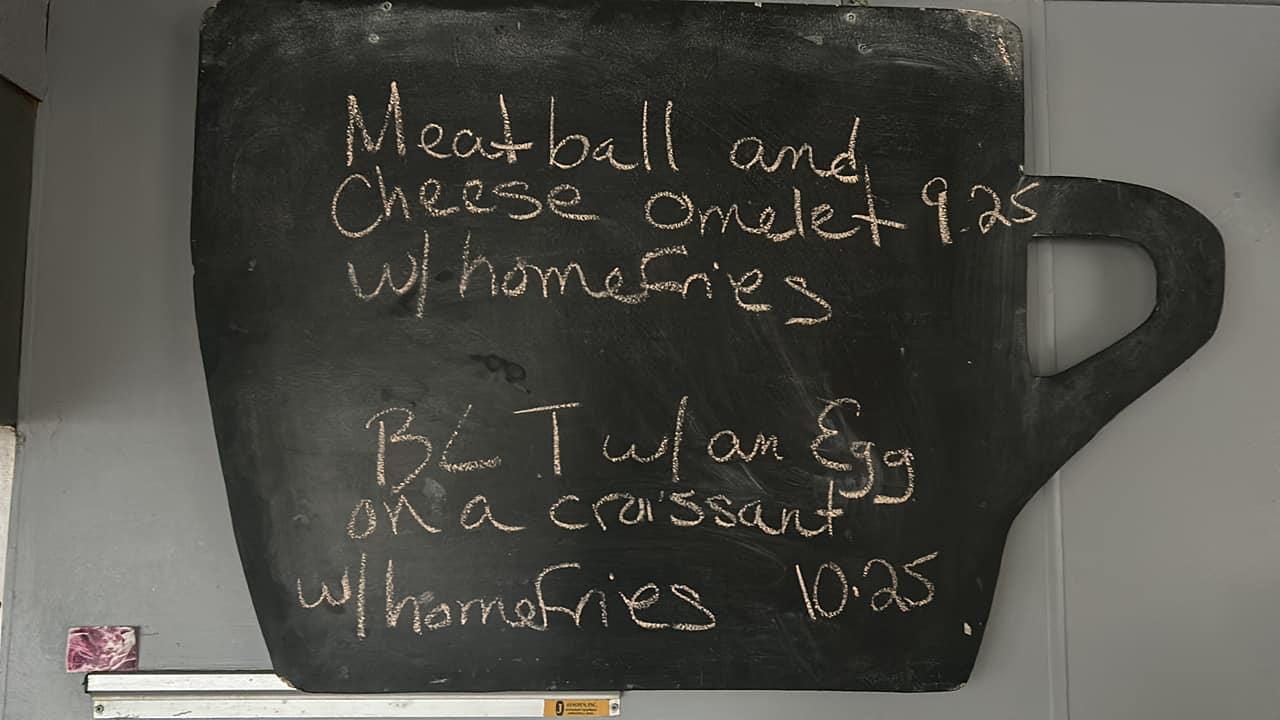 Meatball and
Cheese Omelet 9.25
w/ homefries
BLT w/ an Egg
on a croissant
w/ homefries 10.25